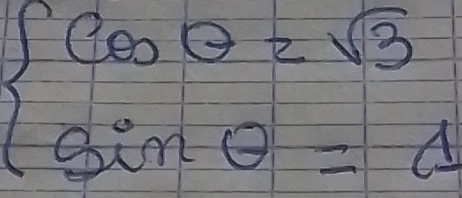 { Cos θ = √3
{ Sin θ = 1